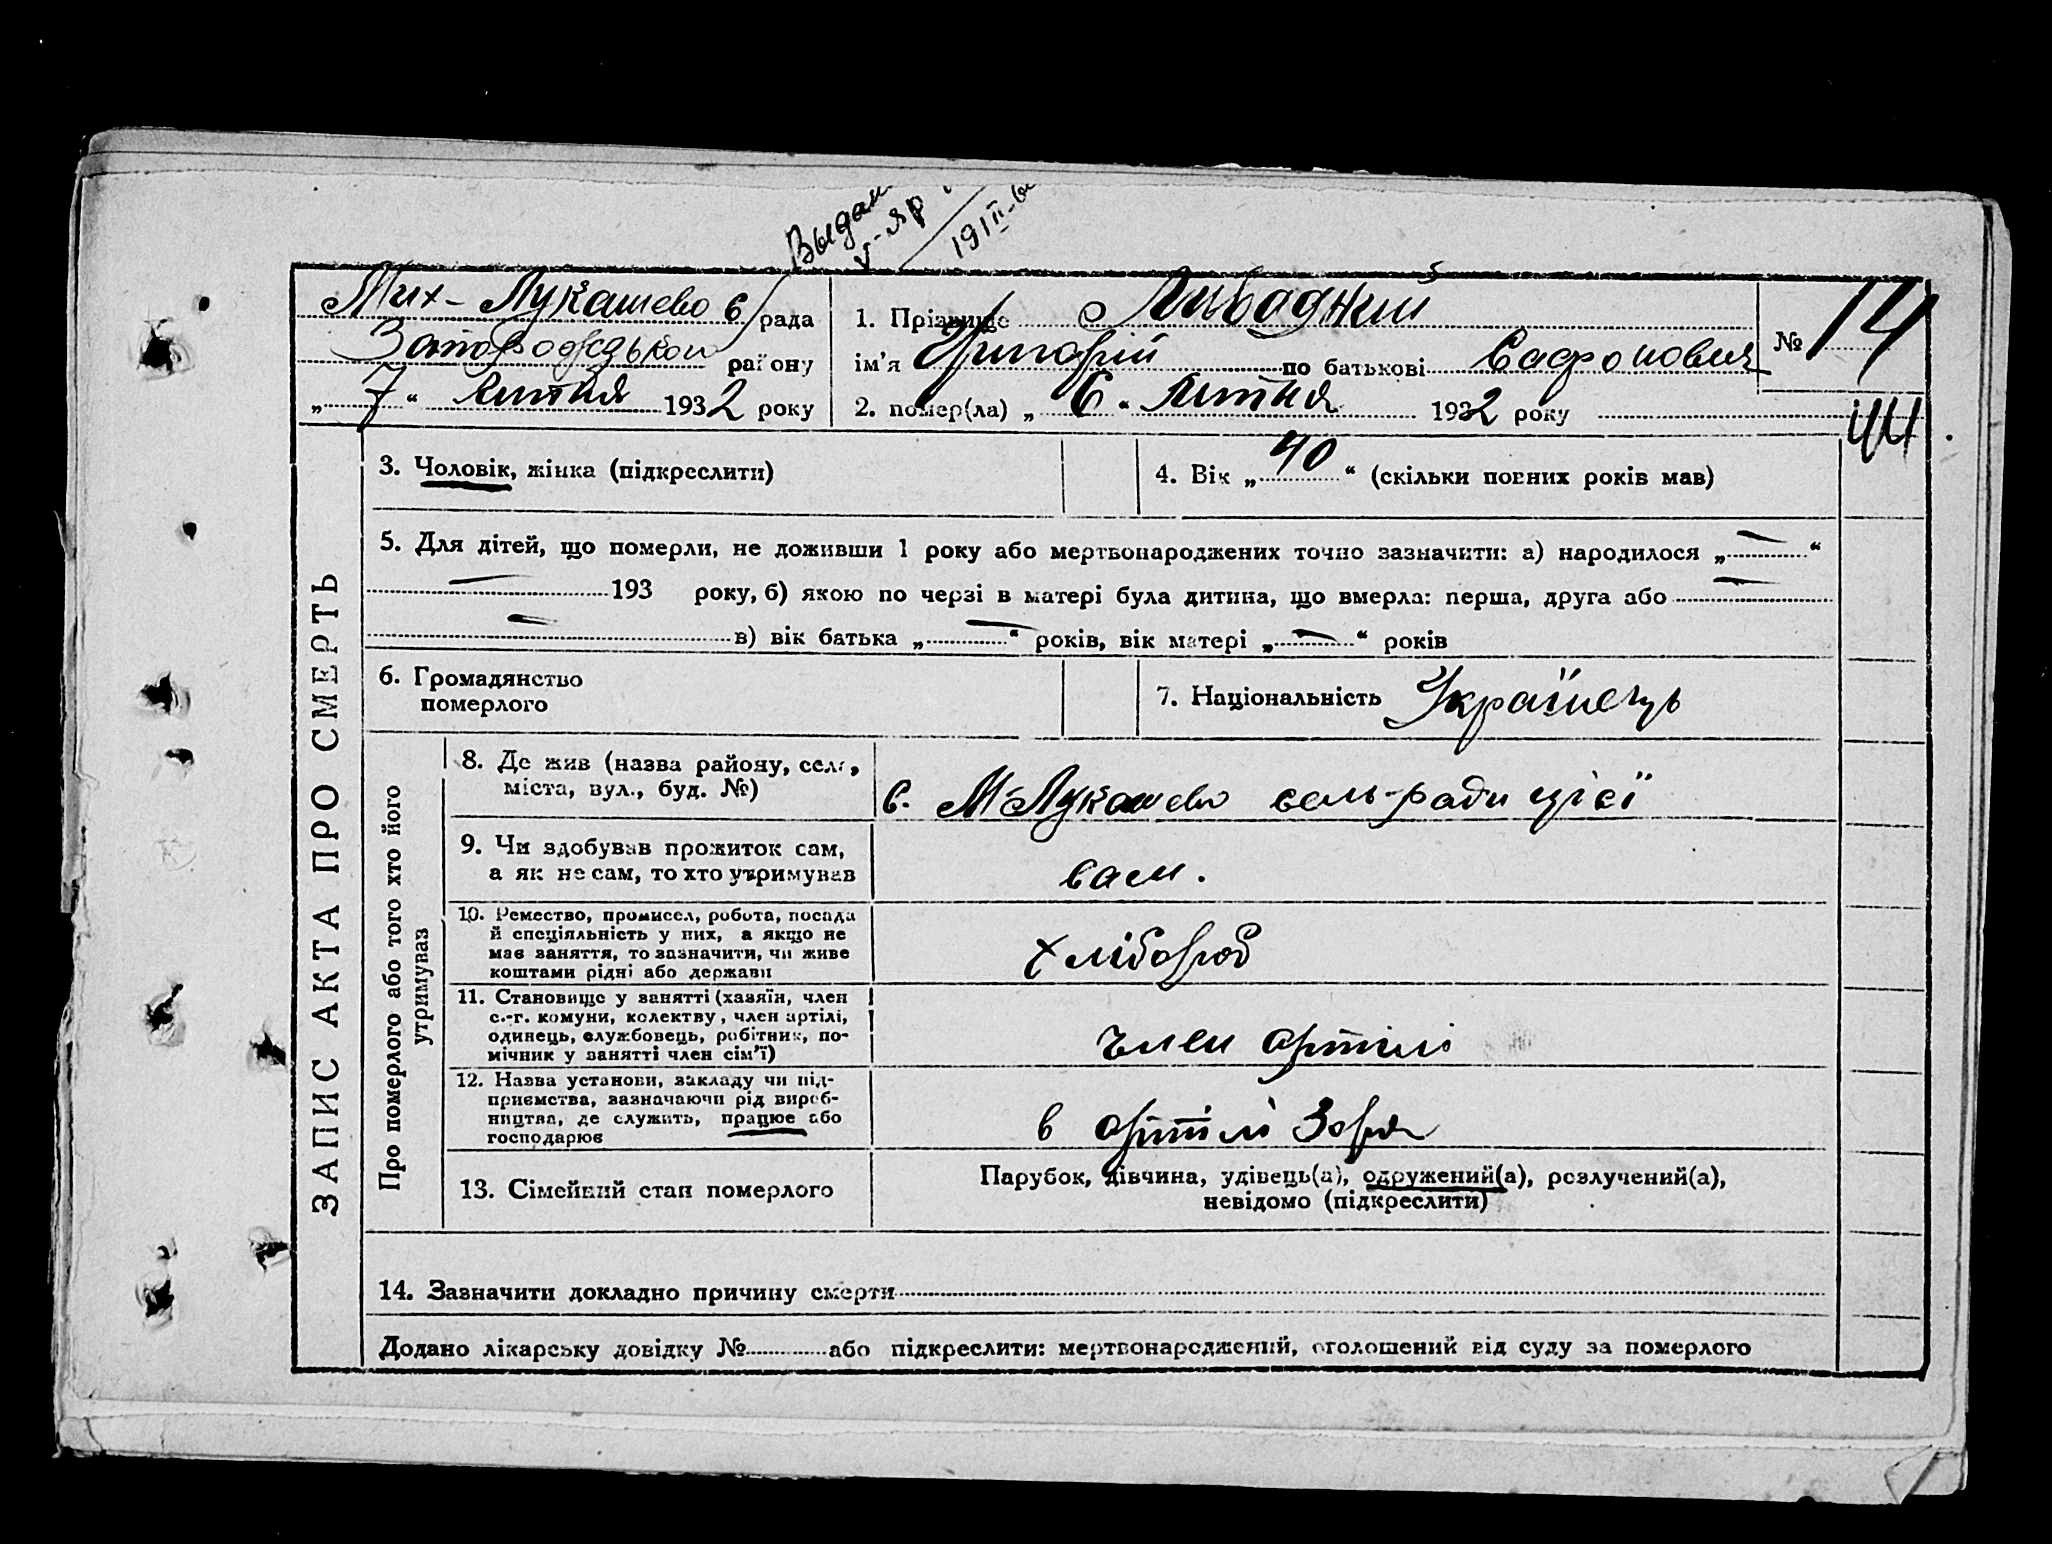 Выдан
V-ЯР
191
Мих-Лукашево с/рада
Запорожської району
„ 7 “ липня 1932 року
1. Прізвище Либоджий
ім’я Григорій по батькові Сафонович
2. помер(ла) „ 6 “ липня 1932 року
№ 14
44
ЗАПИС АКТА ПРО СМЕРТЬ
3. Чоловік, жінка (підкреслити)
4. Вік „ 40 “ (скільки повних років мав)
5. Для дітей, що померли, не доживши 1 року або мертвонароджених точно зазначити: а) народилося „ — “
— 193 року, б) якою по черзі в матері була дитина, що вмерла: перша, друга або —
— в) вік батька „ — “ років, вік матері „ — “ років
6. Громадянство
померлого
7. Національність Українець
Про померлого або того хто його
утримував
8. Де жив (назва району, села,
міста, вул., буд. №)
с. М-Лукашево сель-ради цієї
9. Чи здобував прожиток сам,
а як не сам, то хто утримував
сам.
10. Ремество, промисел, робота, посада
й спеціяльність у них, а якщо не
має заняття, то зазначити, чи живе
коштами рідні або держави
хлібороб
11. Становище у занятті (хазяїн, член
с.-г. комуни, колектву, член артілі,
одинець, службовець, робітник, по-
мічник у занятті член сім’ї)
член артілі
12. Назва установи, закладу чи під-
приємства, зазначаючи рід вироб-
ництва, де служить, працює або
господарює
в артілі Зоря
13. Сімейний стан померлого
Парубок, дівчина, удівець(а), одружений(а), розлучений(а),
невідомо (підкреслити)
14. Зазначити докладно причину смерти
Додано лікарську довідку № або підкреслити: мертвонароджений, оголошений від суду за померлого